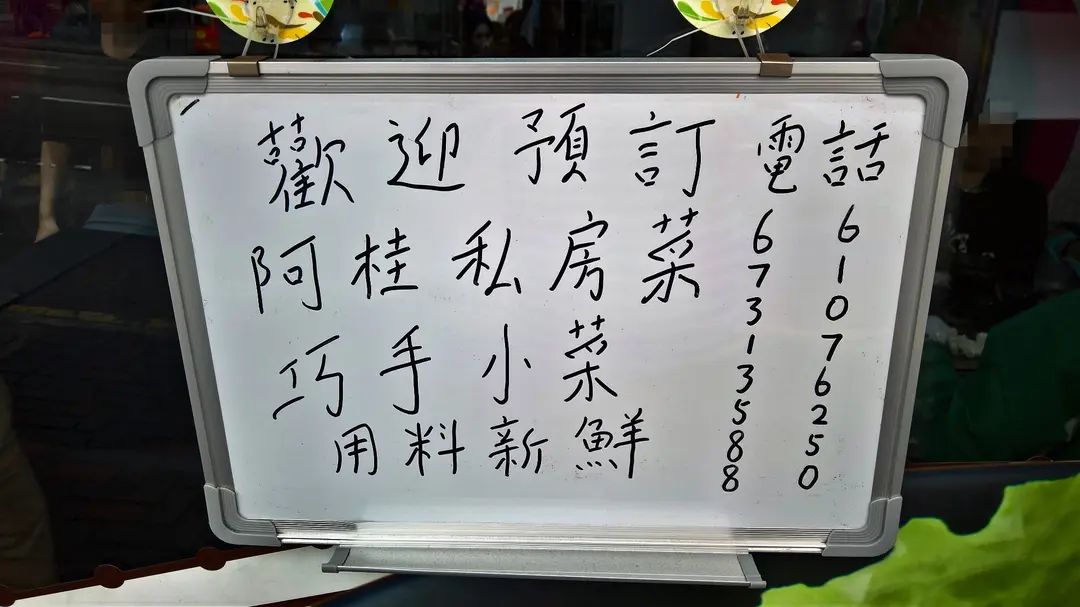 歡迎預訂
阿桂私房菜
巧手小菜
用料新鮮
電話
67313588
61076250